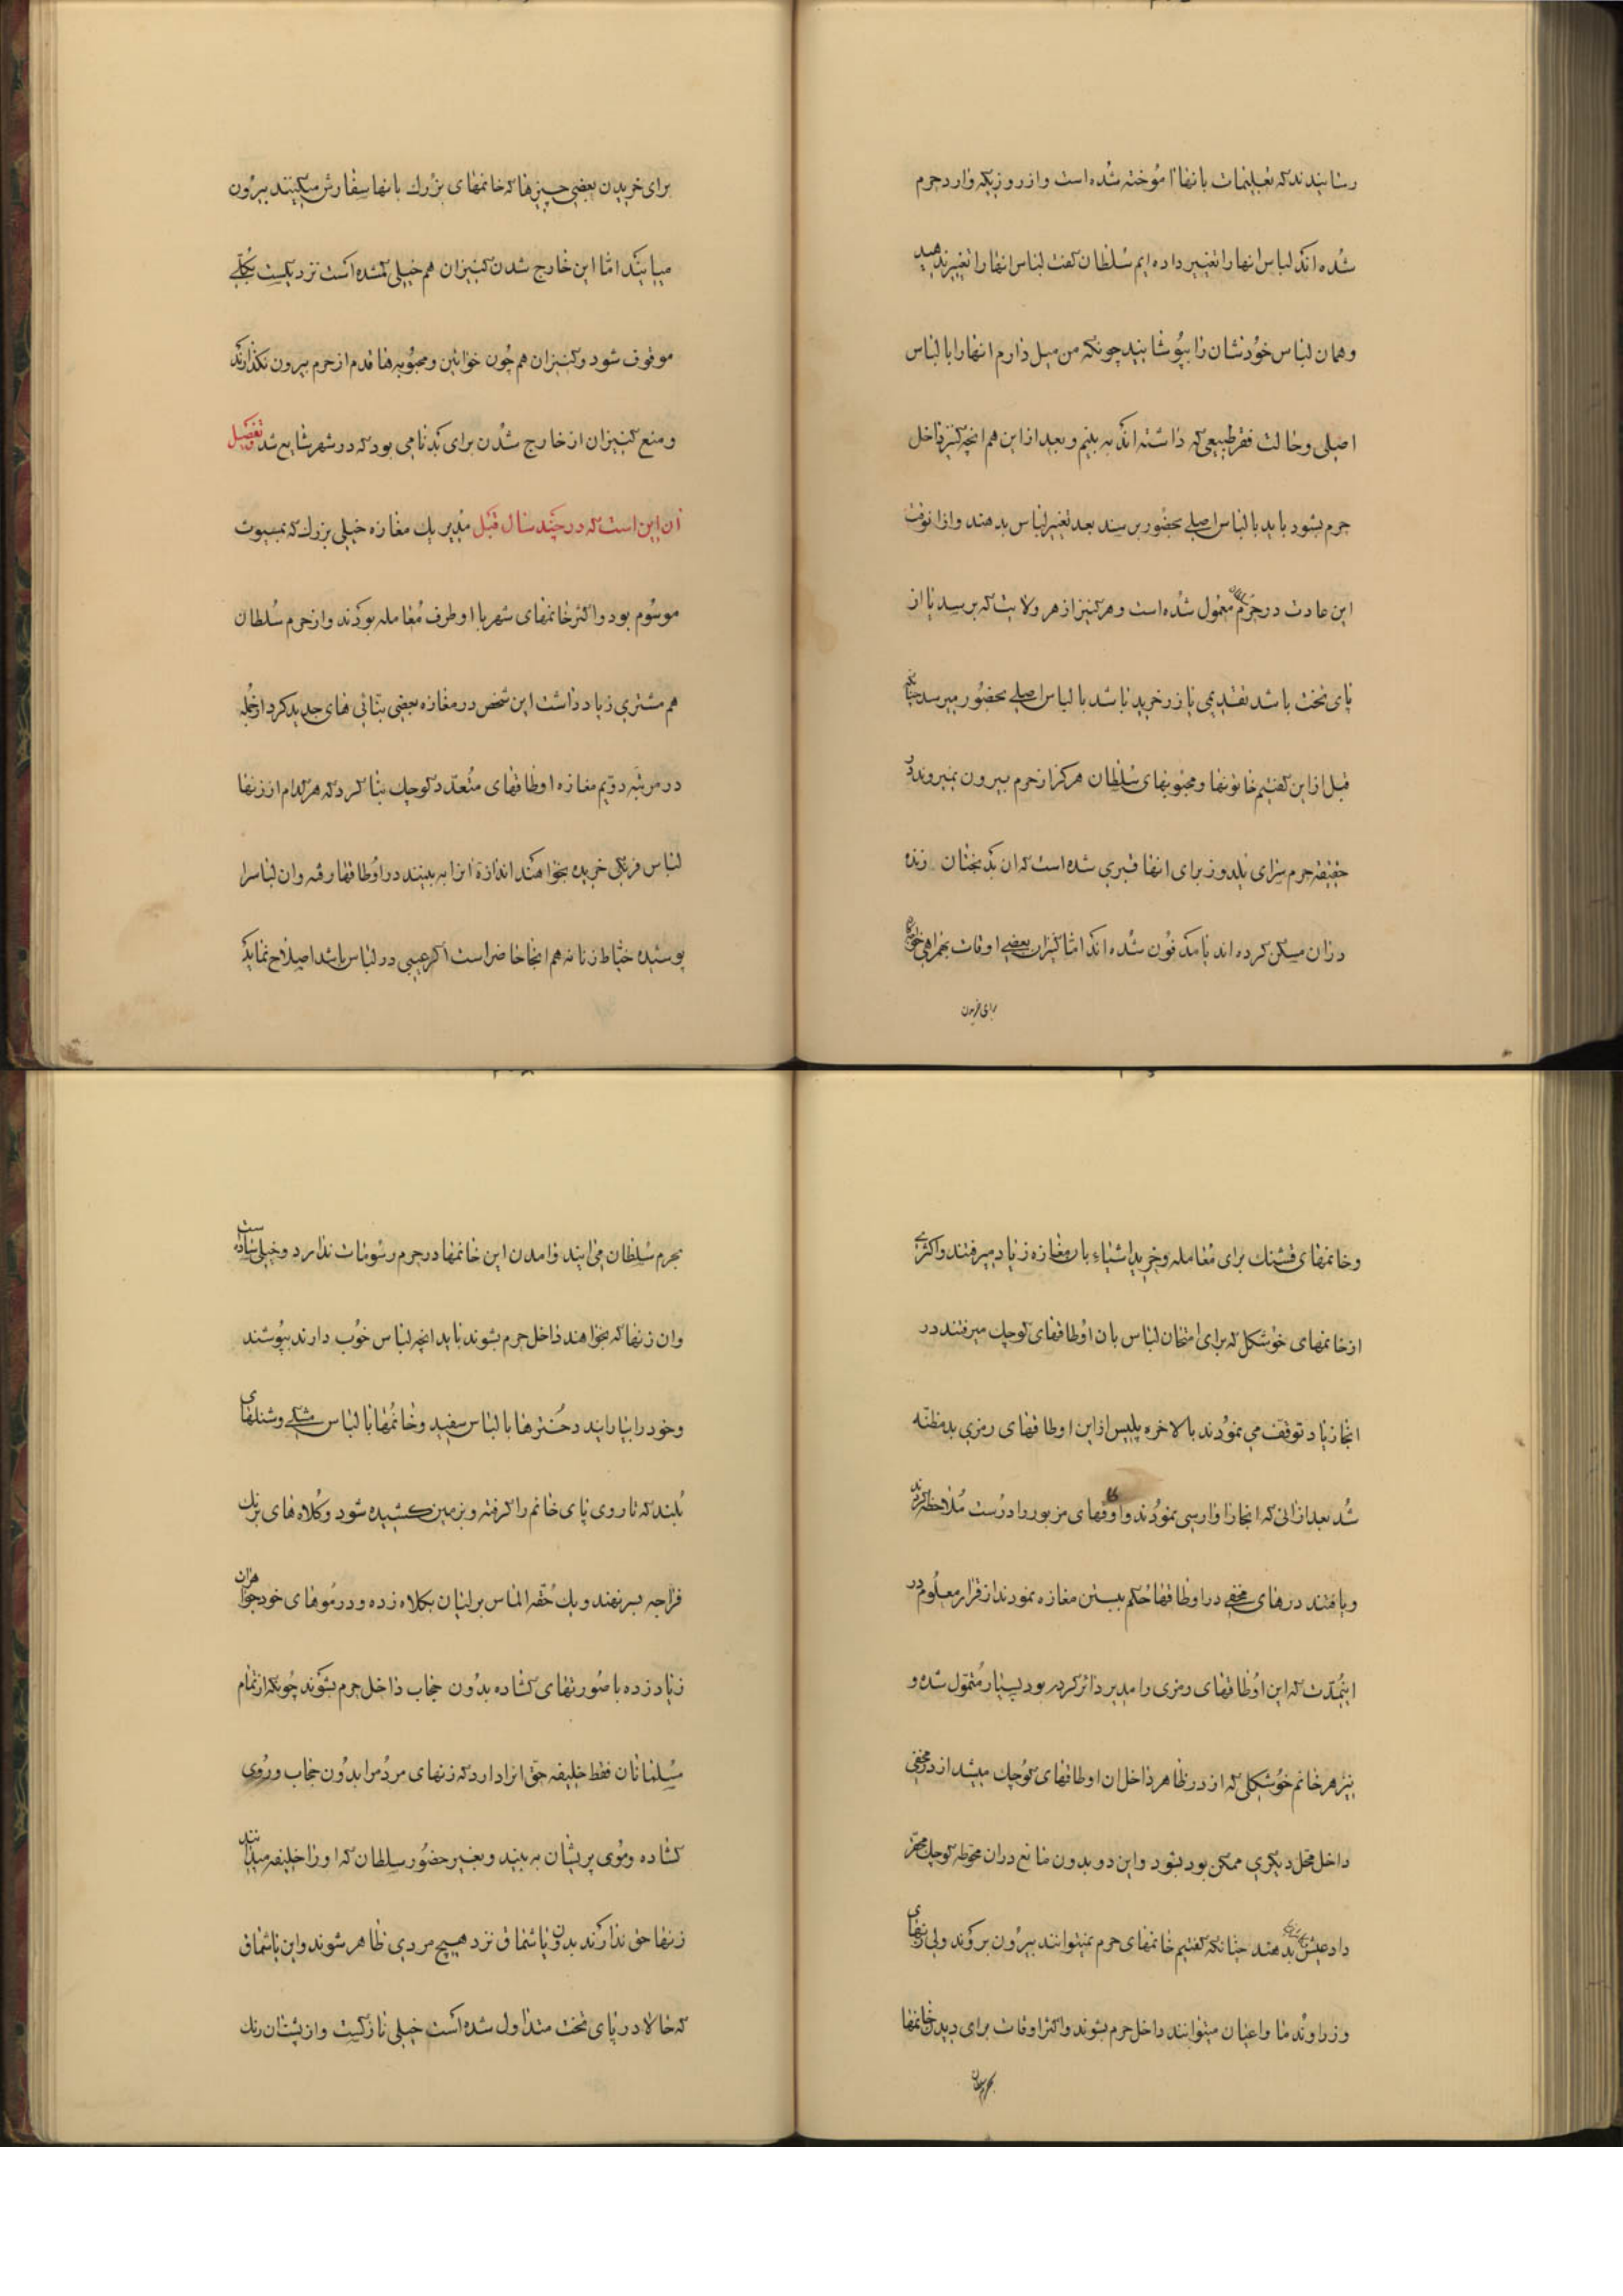 رسانیدند که تعلیمات بانها آموخته شده است و از روزیکه وارد حرم
شده اند لباس انها را تغییر داده ایم سلطان گفت لباس انها را تغییر ندهید
و همان لباس خودشان را بپوشانید چونکه من میل دارم انها را با لباس
اصلی و حالت فقر طبیعی که داشته اند به بینم و بعد از این هم انچه کنیز داخل
حرم بشود باید با لباس اصلی بحضور برسد بعد تغییر لباس بدهند و از انوقت
این عادت در حرم معمول شده است و هر کنیز از هر ولایت که برسد یا از
پای تخت باشد تقدیمی یا زر خرید باشد با لباس اصلی بحضور میرسد چنانکه
قبل از این گفتیم خاتونها و محبوبهای سلطان هرگز از حرم بیرون نمیروند و در
حقیقة حرم سرای یلدوز برای انها قبری شده است که ان بدبختان زنده
در ان مسکن کرده اند یا مدفون شده اند اما کنیزان بعضی اوقات بهمراهی خواجه
برای خریدن
برای خریدن بعضی چیزها که خانمهای بزرک بانها سفارش میکنند بیرون
میایند اما این خارج شدن کنیزان هم خیلی کم شده است نزدیکست بکلی
موقوف شود و کنیزان هم چون خواتین و محبوبه ها قدم از حرم بیرون نکذارند
و منع کنیزان از خارج شدن برای بدنامی بود که در شهر شایع شد تفصیل
آن این است که در چند سال قبل مدیر یک مغازه خیلی بزرك که ببیوت
موسوم بود و اکثر خانمهای شهر با او طرف معامله بودند و از حرم سلطان
هم مشتری زیاد داشت این شخص در مغازه بعضی بنائی های جدید کرد از جمله
در مرتبه دویم مغازه اوطاقهای متعدد کوچک بنا کرد که هر کدام از زنها
لباس فرنگی خریده بخواهند اندازه آنرا به بینند در اوطاقها رفه و ان لباسرا
پوشیده خیاط زنانه هم انجا حاضر است اکر عیبی در لباس باشد اصلاح نماید
و خانمهای قشنك برای معامله و خرید اشیاء بان مغازه زیاد میرفتند و اکثری
از خانمهای خوشکل که برای امتحان لباس بان اوطاقهای کوچك میرفتند در
انجا زیاد توقف می نمودند بالاخره پلیس از این اوطاقهای رمزی بد مظنه
شد بعد از انی که انجا را وارسی نمودند و اوطاقهای مزبور را درست ملاحظه کردند
و یافتند درهای مخفی در اوطاقها حکم ببستن مغازه نمودند از قرار معلوم در
اینمدت که این اوطاقهای رمزی را مدیر دائر کرده بود بسیار متمول شده و
نیز هر خانم خوشکلی که از در ظاهر داخل ان اوطاقهای کوچك میشد از در مخفی
داخل محل دیکری ممکن بود بشود و این دو بدون مانع در ان محوطه کوچك محقر
داد عیش بدهند چنانکه گفتیم خانمهای حرم نمیتوانند بیرون بروند ولی زنهای
وزرا و ندما و اعیان میتوانند داخل حرم بشوند و اکثر اوقات برای دیدن خانمها
بحرم سلطان
بحرم سلطان می ایند و امدن این خانمها در حرم رسومات ندارد و خیلی ساده ست
و ان زنها که بخواهند داخل حرم بشوند باید انچه لباس خوب دارند بپوشند
و خود را بیارایند دخترها با لباس سفید و خانمها با لباس مشکی و شنلهای
بلند که تا روی پای خانم را کرفته و بزمین کشیده شود و کلاه های بزرك
فراجه بسر نهند و یك حقه الماس برلیان بکلاه زده و در موهای خود جواهران
زیاد زده با صورتهای کشاده بدون حجاب داخل حرم بشوند چونکه از تمام
مسلمانان فقط خلیفه حق انرا دارد که زنهای مردم را بدون حجاب و روی
کشاده و موی پریشان به بیند و بغیر حضور سلطان که او را خلیفه میدانند
زنها حق ندارند بدون یاشماق نزد هیچ مردی ظاهر شوند و این یاشماق
که حالا در پای تخت متداول شده است خیلی نازکست و از پشتان رنك